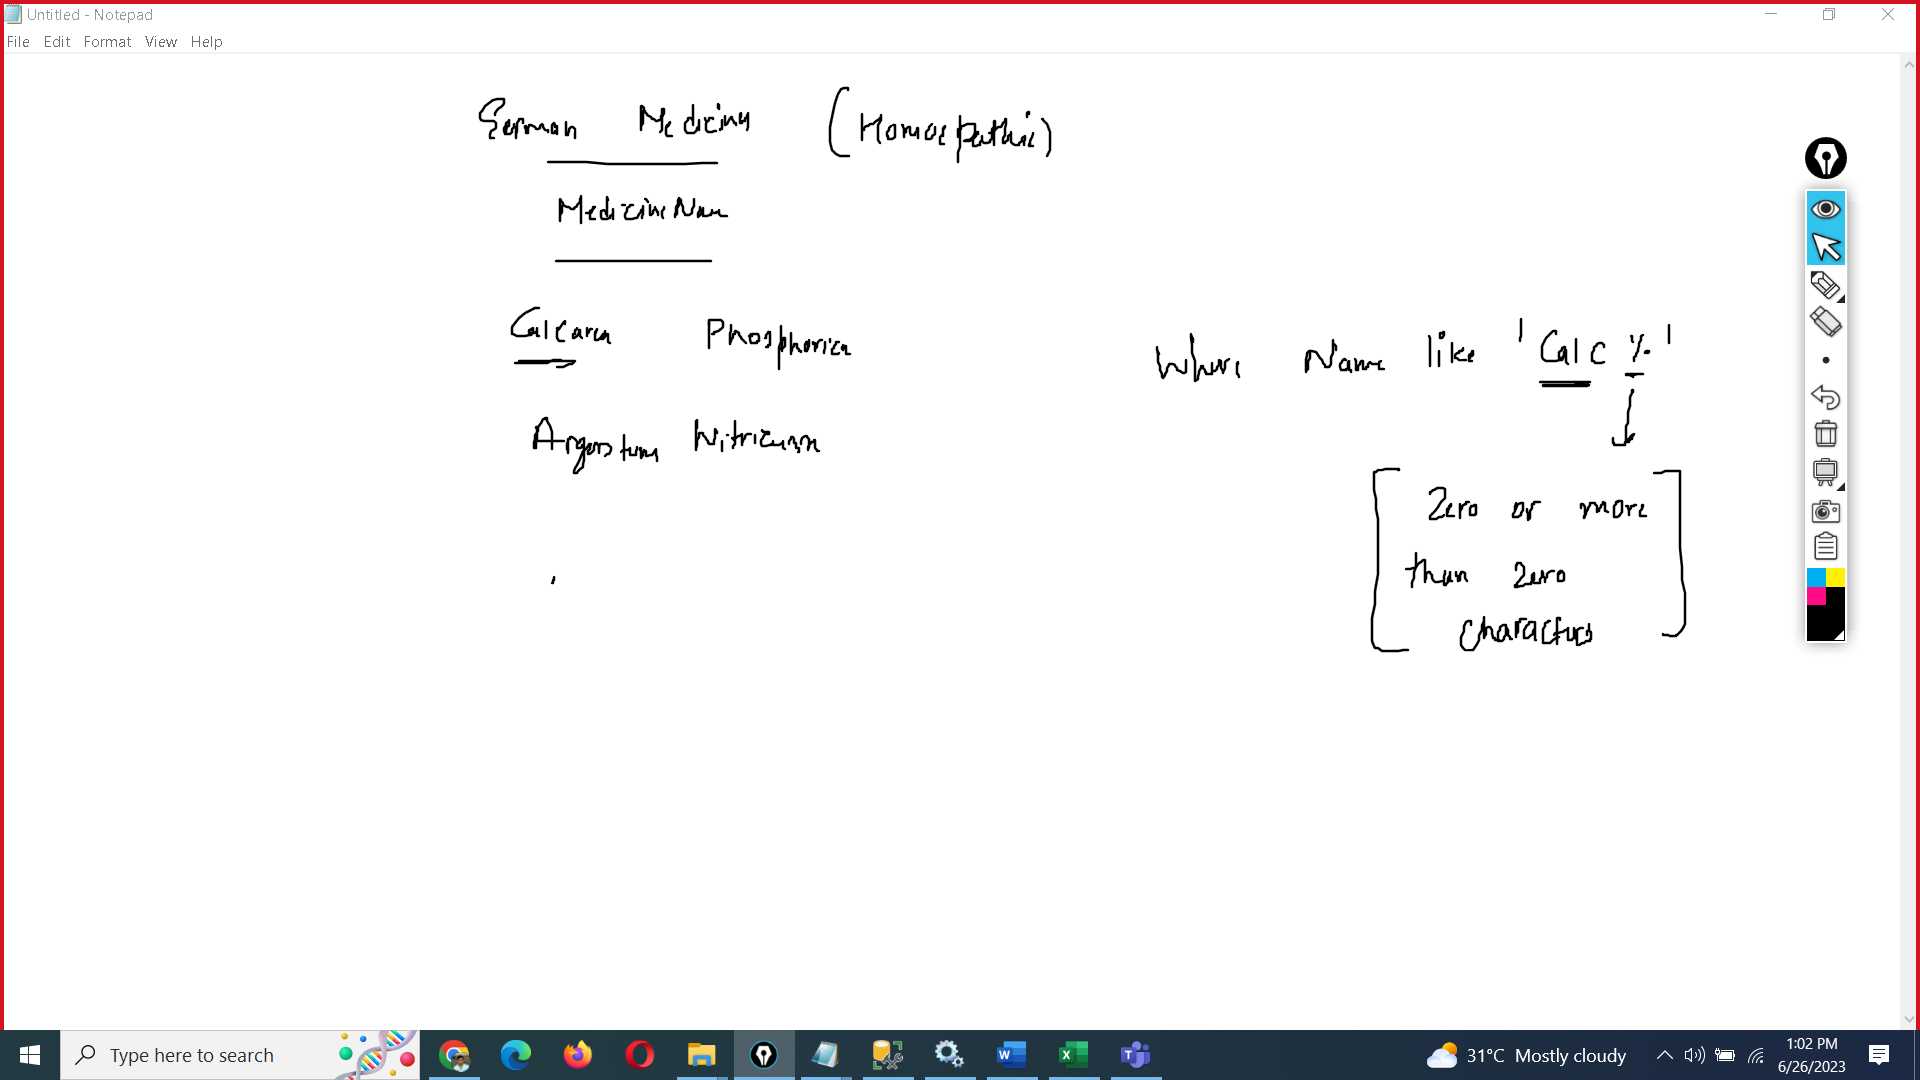 Untitled - Notepad
File Edit Format View Help
German Medicine (Homoepathic)
MedicineName
Calcarea Phosphorica
Where Name like 'Calc%'
Argentum Nitricum
Zero or more
than zero
characters
Type here to search
31°C Mostly cloudy
1:02 PM
6/26/2023